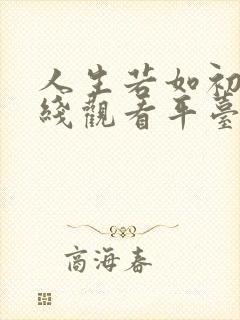 人生若如初
綫觀看平臺
商海春